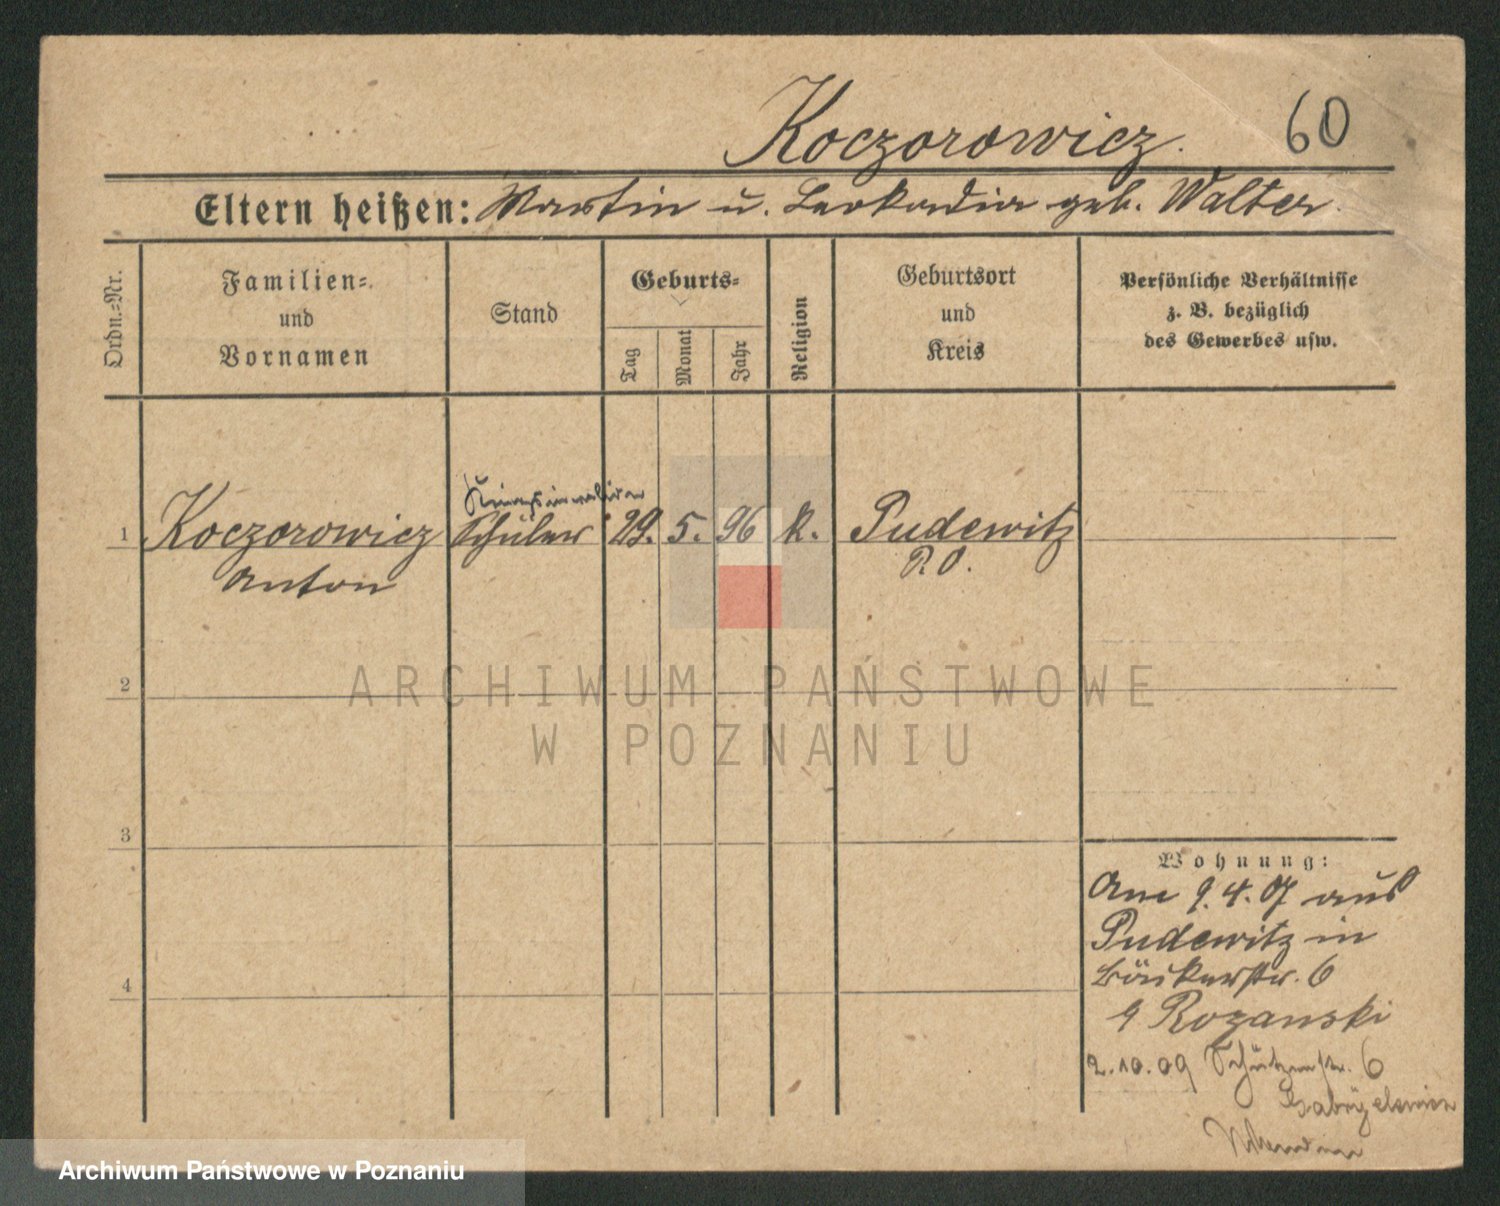 Koczorowicz. 60
Eltern heißen: Martin u. Leokadia geb. Walter.
Ordn.-Nr.
Familien- und Vornamen
Stand
Geburts-
Tag
Monat
Jahr
Religion
Geburtsort und Kreis
Persönliche Verhältnisse z. B. bezüglich des Gewerbes usw.
Kriegsinvalide
1 Koczorowicz Schüler 29. 5. 96 k. Pudewitz
Anton P.O.
2
ARCHIWUM PAŃSTWOWE
W POZNANIU
3
4
Wohnung:
Am 9.4.07 aus
Pudewitz in
Bäukerstr. 6
Rozanski
2.10.09 Schützenstr. 6
Archiwum Państwowe w Poznaniu